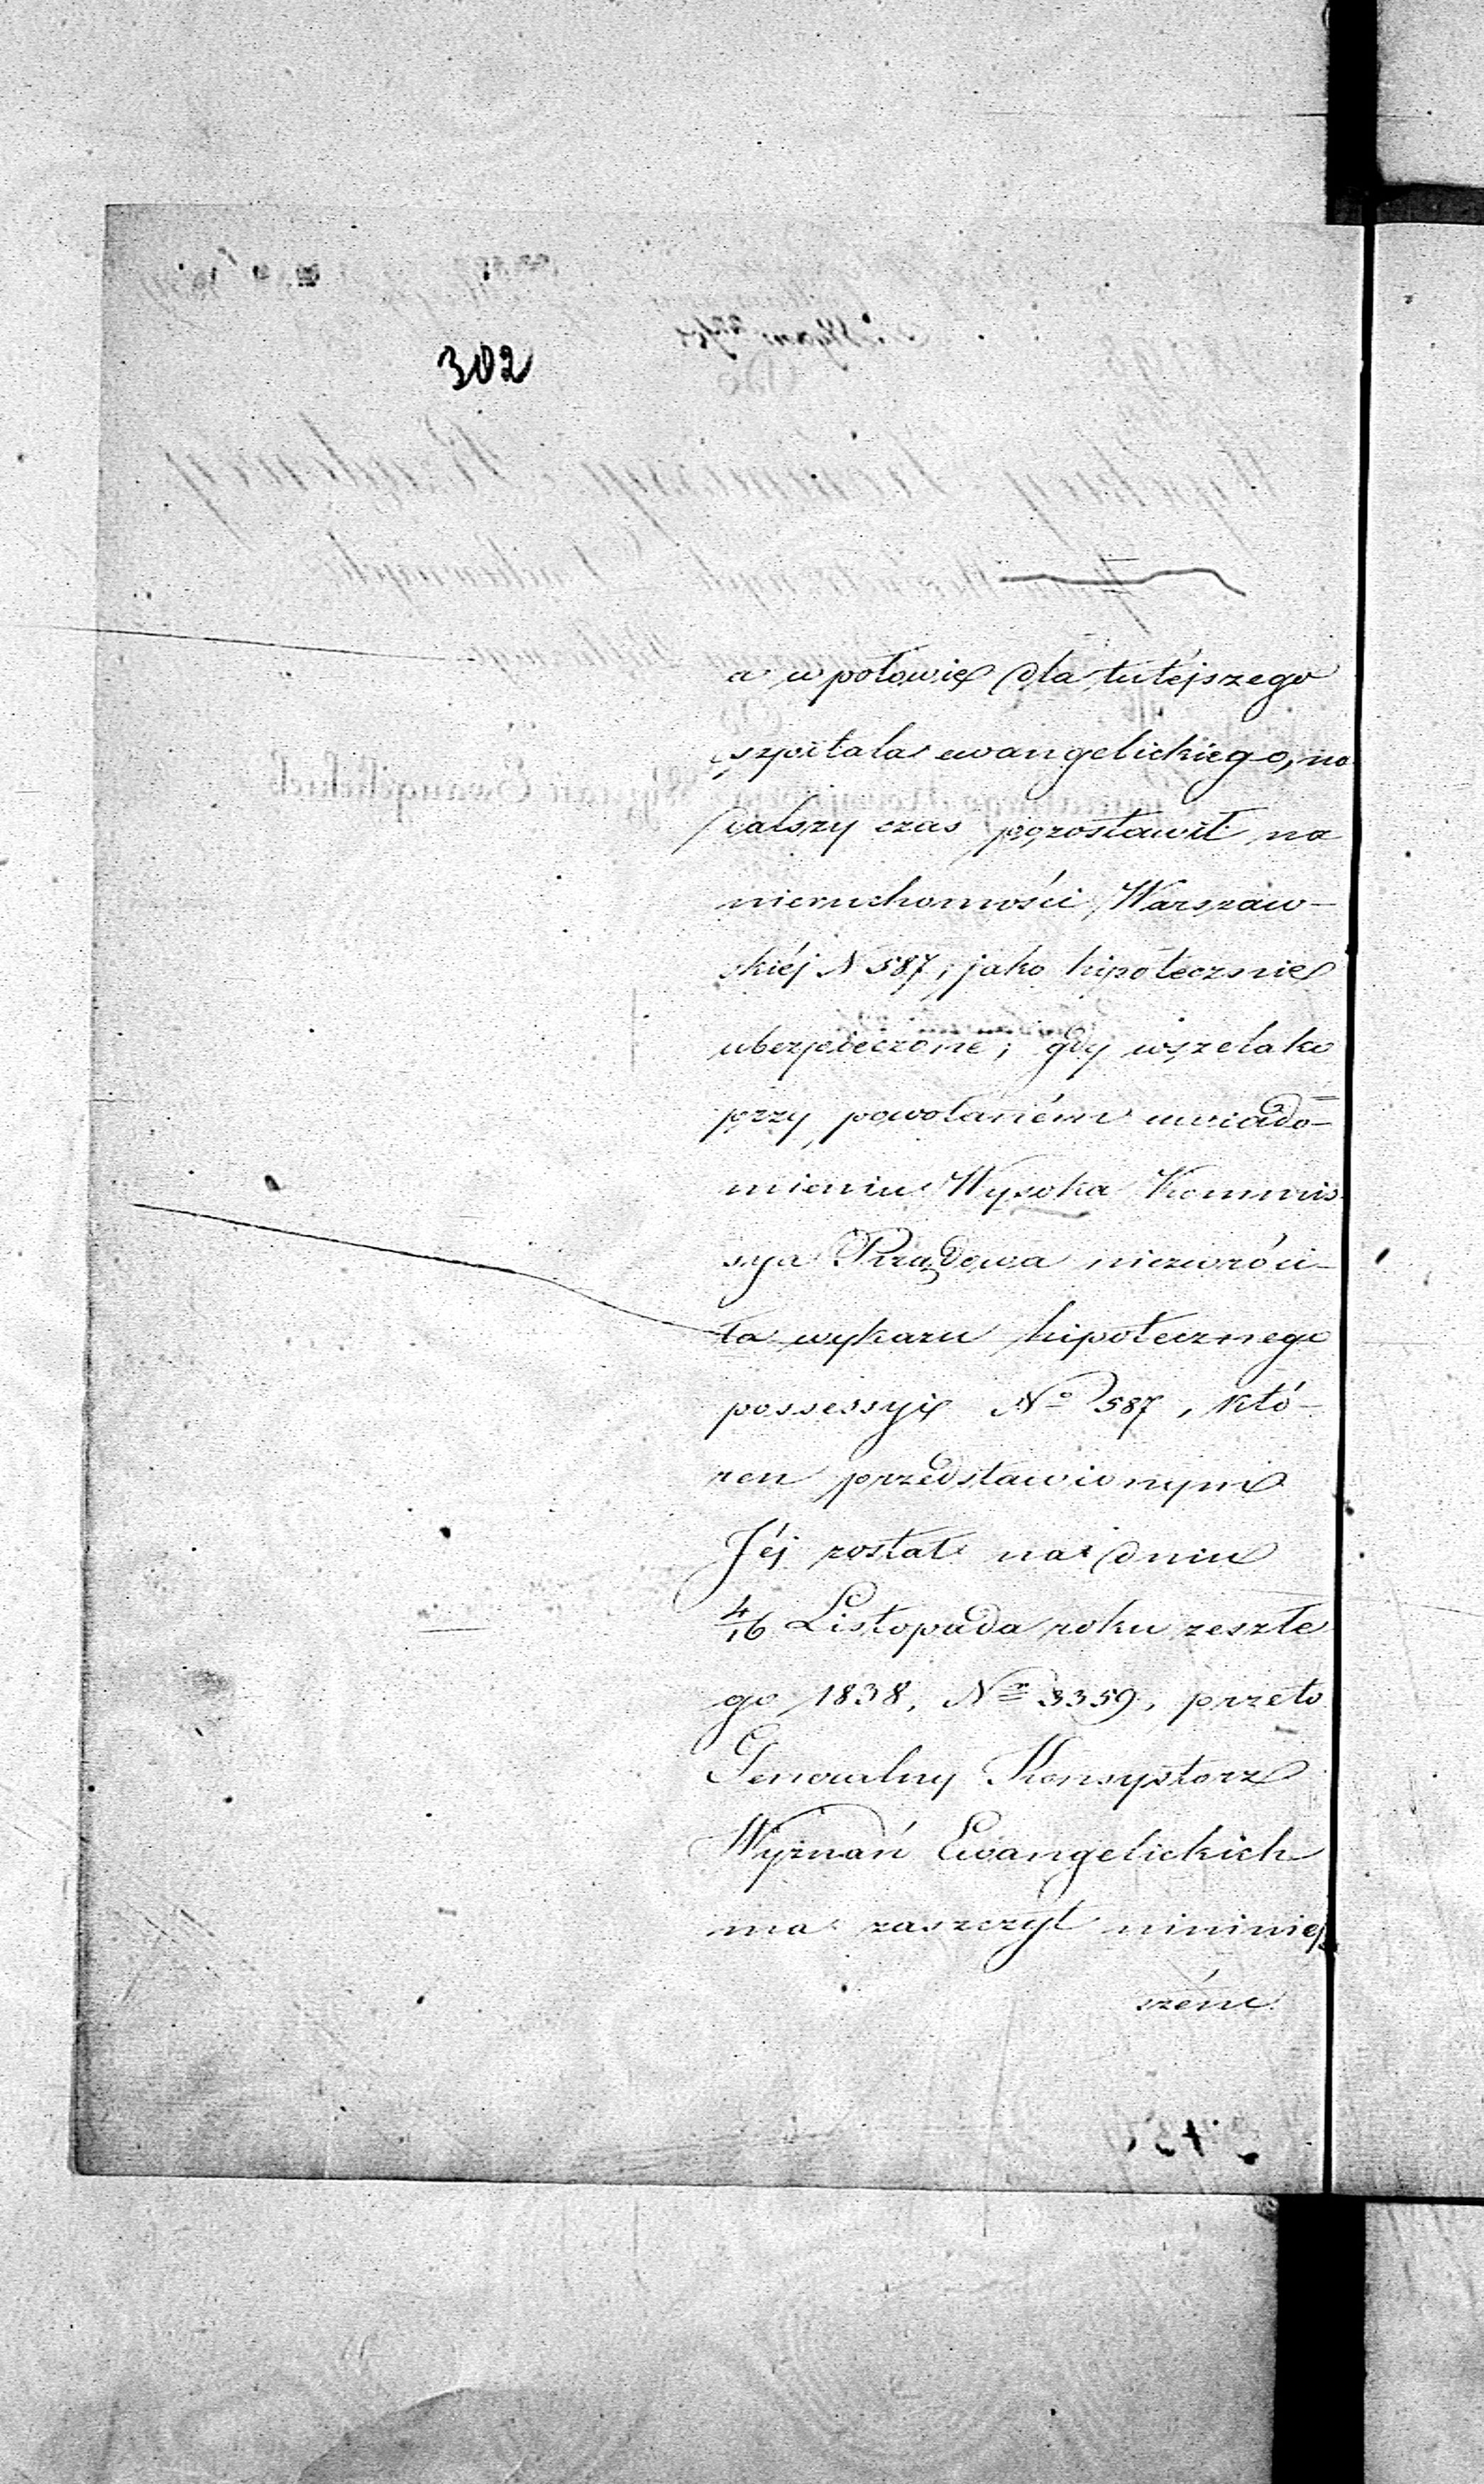 302
a w połowie dla tutéjszego
szpitala ewangelickiego, na
dalszy czas pozostawił na
nieruchomości Warszaw-
skiéj N 587, jako hipotecznie
ubezpieczone; gdy wszelako
przy powołaném uwiado-
mieniu Wysoka Kommis-
sya Rządowa niezwróci-
ła wykazu hipotecznego
possessyi No 587, któ-
ren przedstawionym
Jéj został na dniu
4/16 Listopada roku zeszłe
go 1838, Nr 3359, przeto
Generalny Konsystorz
Wyznań Ewangelickich
ma zaszczyt nininiej
szém